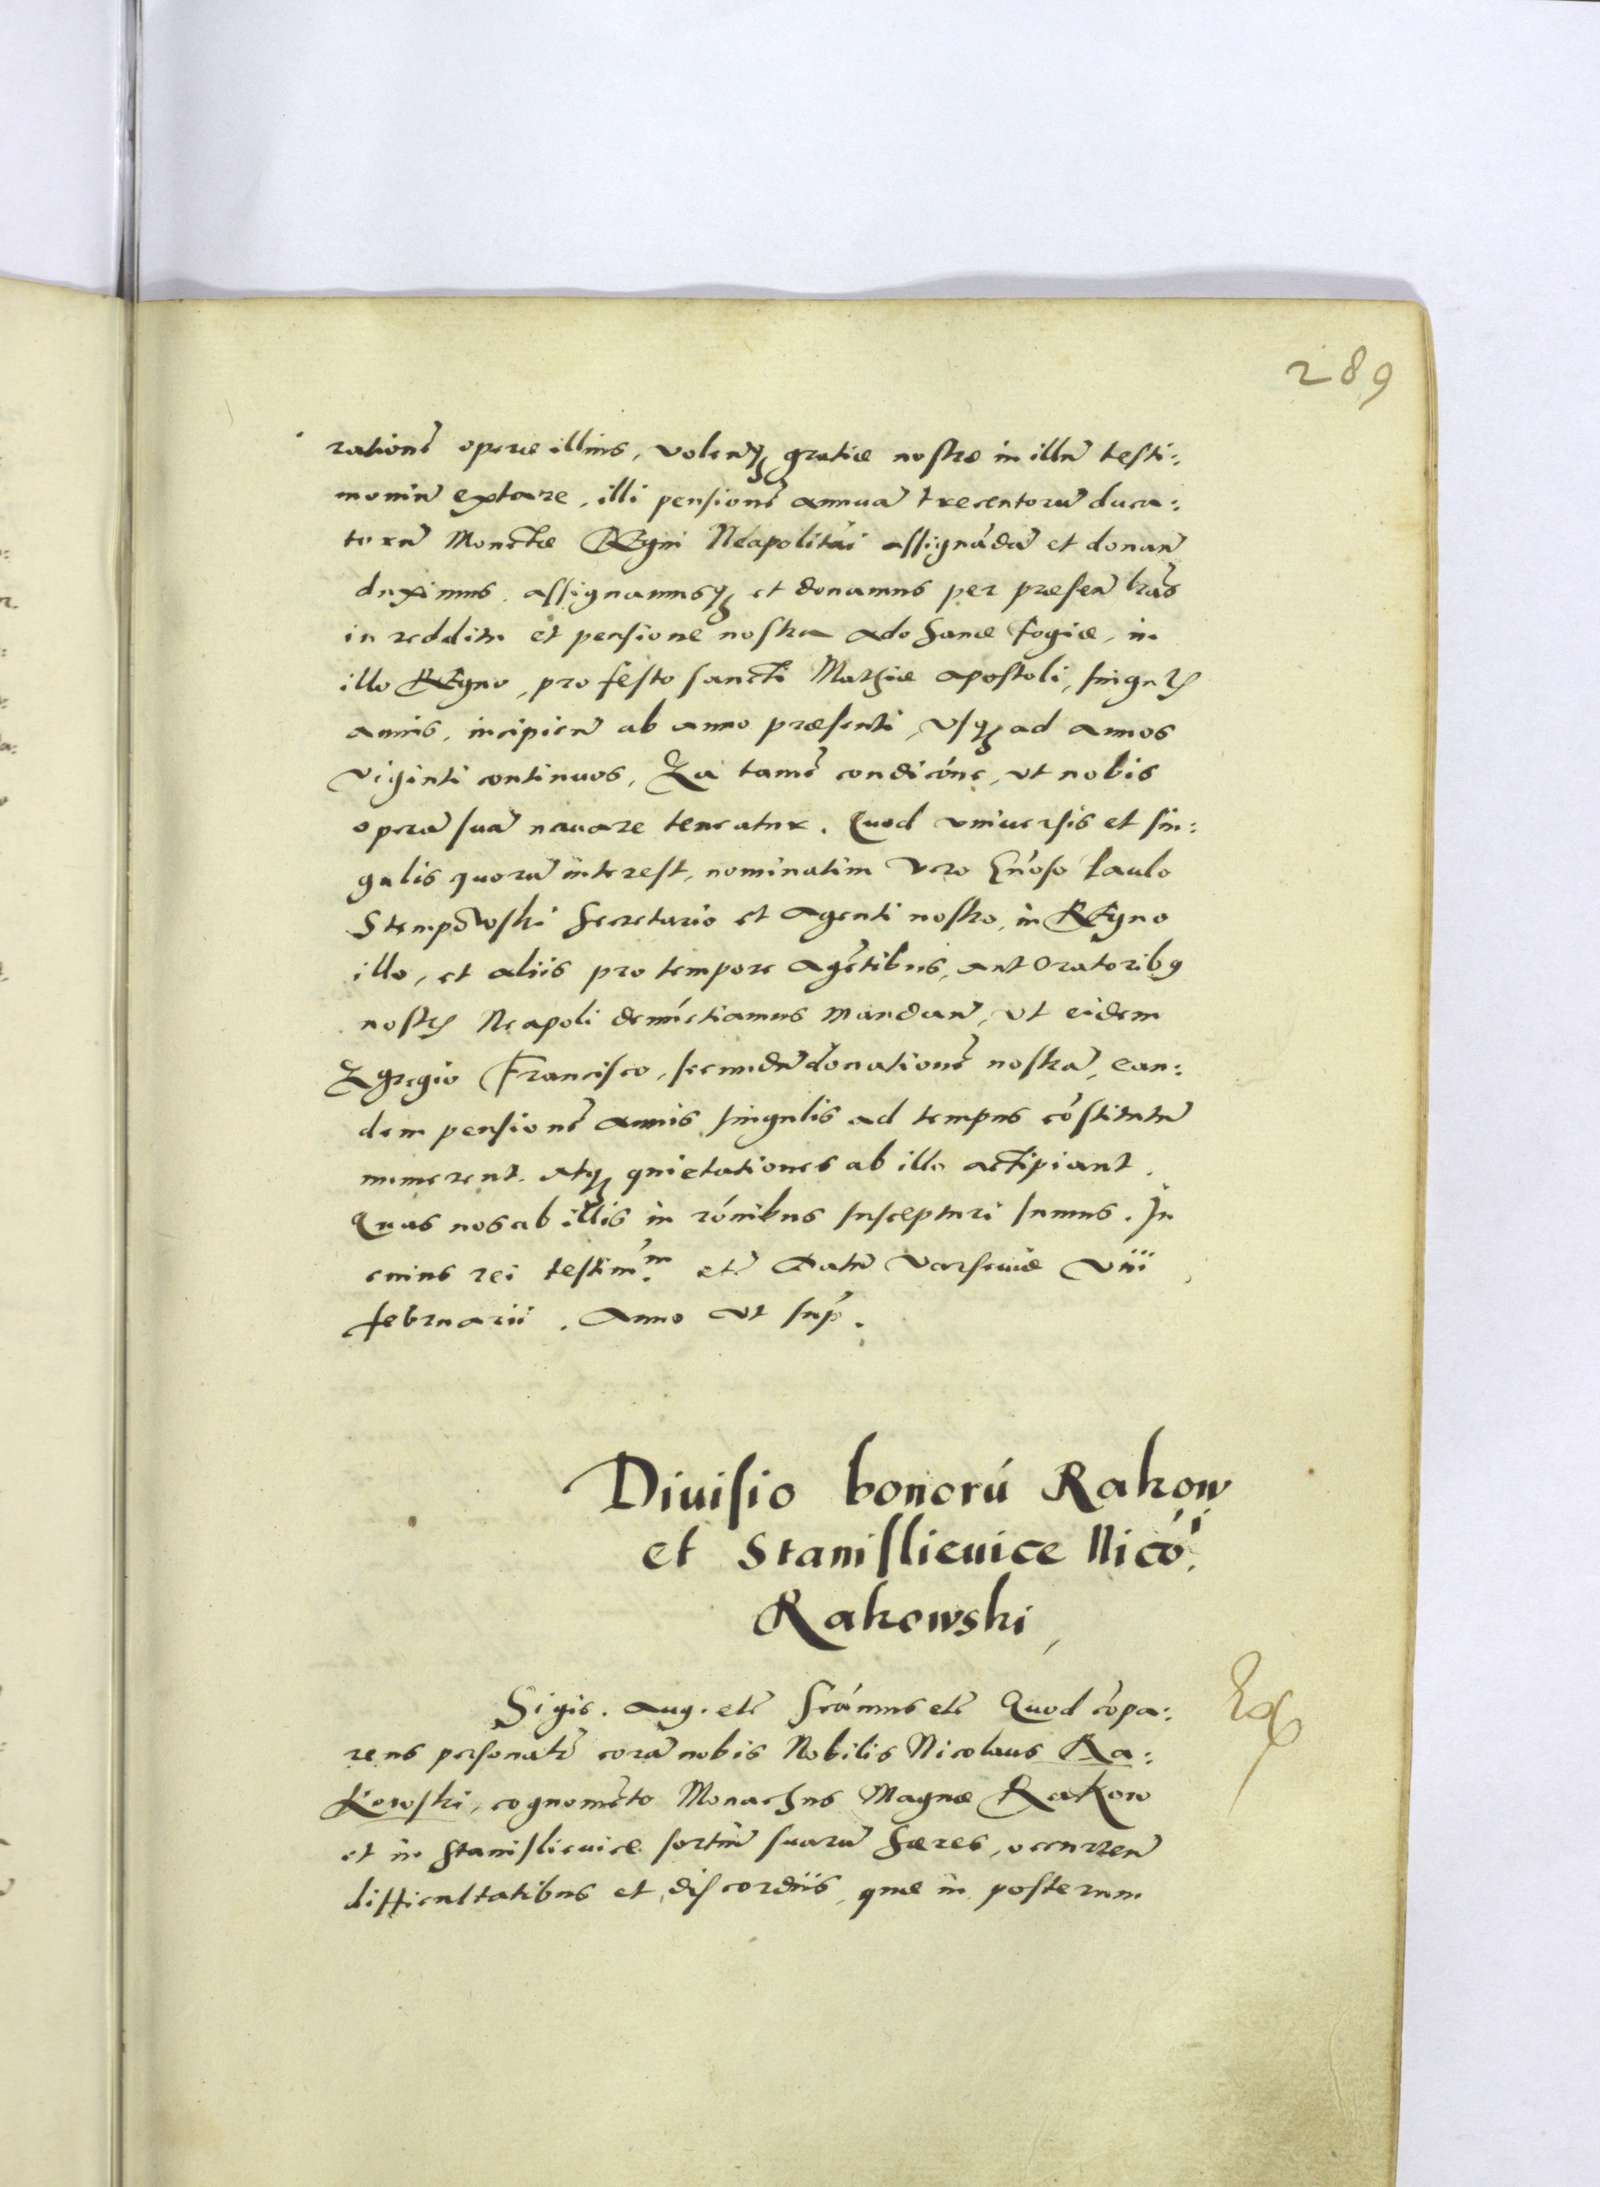 289
rationẽ operæ illius, volentꝗ gratiæ nostræ in illũ testi:
moniũ extare, illi pensionẽ annuã trecentorũ duca:
torũ Monetæ Regni Neapolitãi assignãdã et donan̄
duximus, assignamusqꝫ et donamus per præsen̄ l̃ras
in redditu et pensione nostra adohanæ Fogiæ, in
illo Regno, pro festo sancti Mathiæ apostoli, singul̃
annis, incipien̄ ab anno præsenti, vsqꝫ ad annos
viginti continuos, Ea tamẽ condicõne, vt nobis
operã suã nauare teneatur. Quod vniuersis et sin:
gulis quorũ interest, nominatim vero G̃noso Paulo
Stempowski Secretario et Agenti nostro, in Regno
illo, et aliis pro tempore agẽtibus, aut Oratorib9
nostr̃ Neapoli denũctiamus mandan̄, vt eidem
Egregio Francisco, secundũ donationẽ nostrã, ean:
dem pensionẽ annis singulis ad tempus cõstitutũ
numerent. atqꝫ quietationes ab illo accipiant.
Quas nos ab illis in rõnibus suscepturi sumus. In
cuius rei testim̃m. etc̃ Datũ Varsauiæ VIII
februarii. Anno vt sup̃.
Diuisio bonorũ Rakow
et Stanislieuice Nicõi
Rakowski,
Ex
Sigis. Aug. etc̃ Scãmus etc̃ Quod cõpa:
rens personalr̃ corã nobis Nobilis Nicolaus Ra:
kowski, cognomẽto Monachus Magnæ Rakow
et in Stanislieuice sortiũ suarũ hæres, occurren̄
difficultatibus et discordiis, quæ in posterum